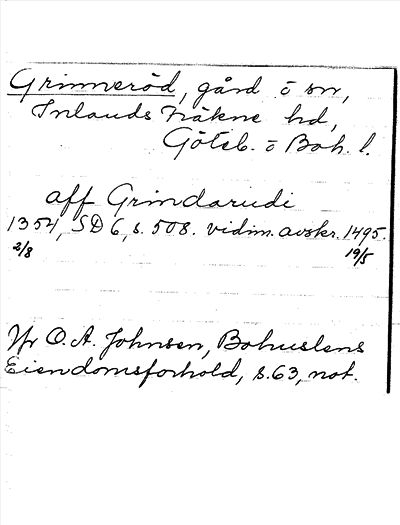 Grinneröd, gård ō sn,
Inlands Fräkne hd,
Göteb. ō Boh. l.
aff Grindarudi
1354, SD 6, s. 508. vidim. avskr. 1495.
2/8 19/5
Jfr O. A. Johnsen, Bohuslens
Eiendomsforhold, s. 63, not.